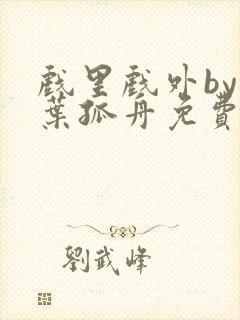 戲里戲外by
葉孤舟免費
劉武峰